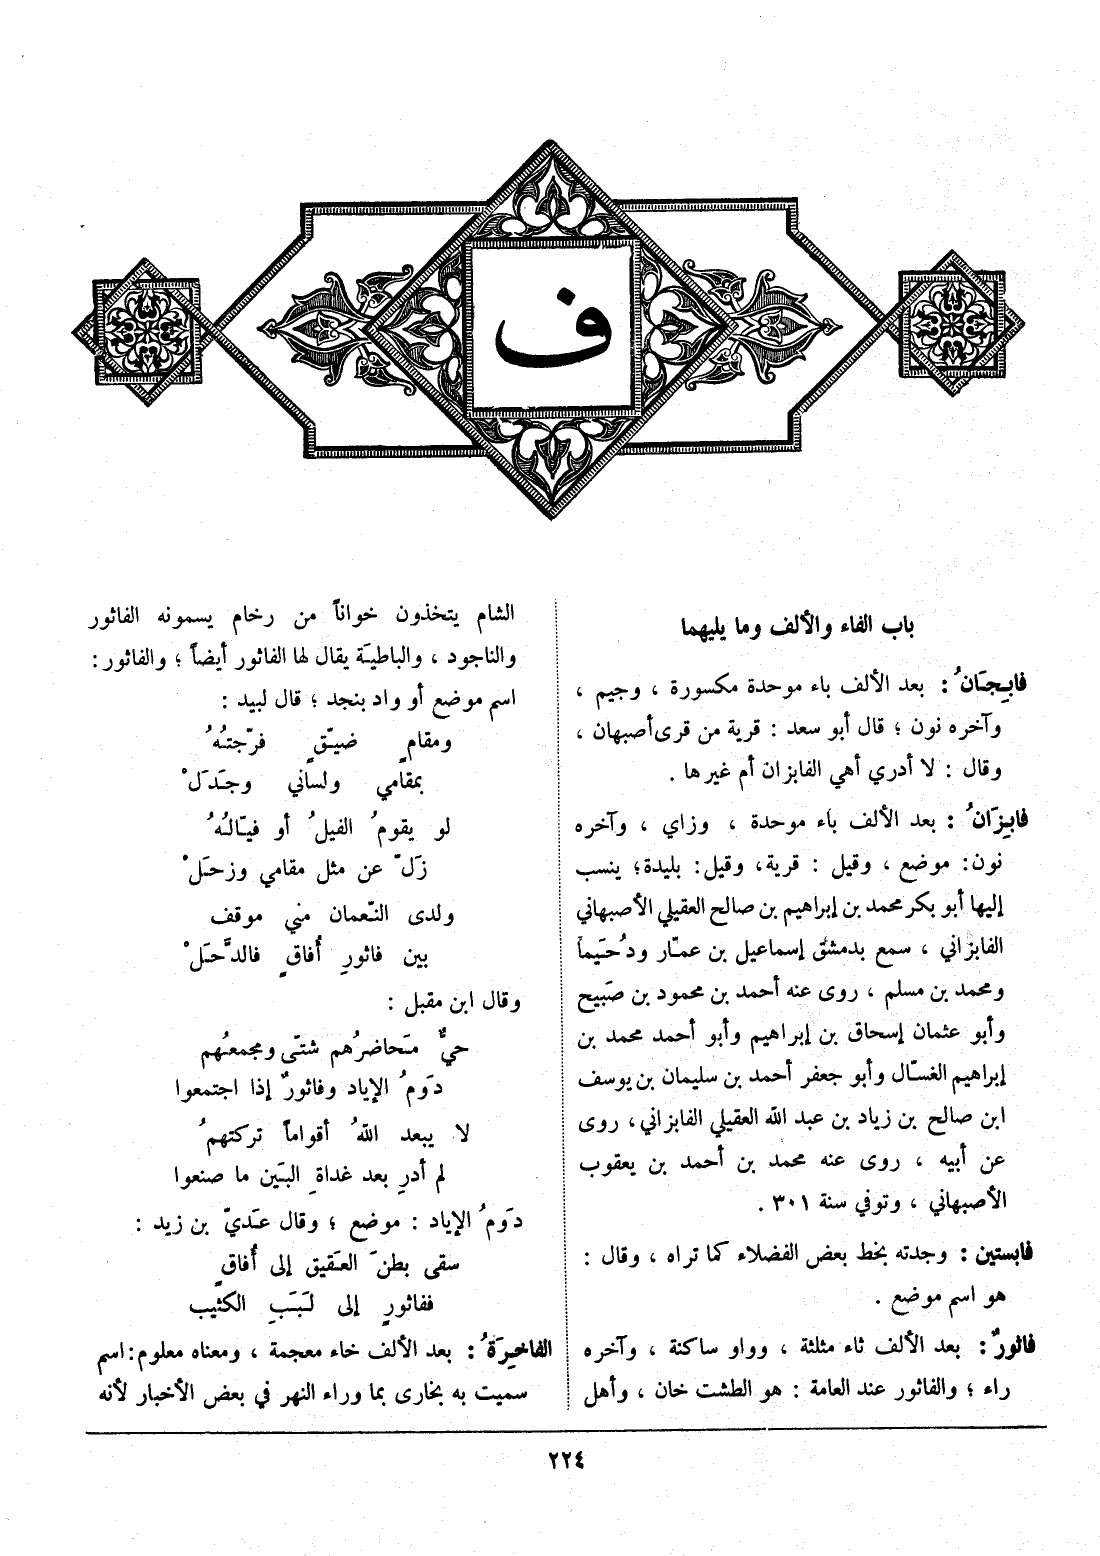 ف
باب الفاء والألف وما يليهما
فابِجَانُ : بعد الألف باء موحدة مكسورة ، وجيم ،
وآخره نون ؛ قال أبو سعد : قرية من قرى أصبهان ،
وقال : لا أدري أهي الفابزان أم غيرها .
فابِزَانُ : بعد الألف باء موحدة ، وزاي ، وآخره
نون : موضع ، وقيل : قرية، وقيل : بليدة؛ ينسب
إليها أبو بكر محمد بن إبراهيم بن صالح العقيلي الأصبهاني
الفابزاني ، سمع بدمشق إسماعيل بن عمّار ودُحَيماً
ومحمد بن مسلم ، روى عنه أحمد بن محمود بن صَبيح
وأبو عثمان إسحاق بن إبراهيم وأبو أحمد محمد بن
إبراهيم الغسّال وأبو جعفر أحمد بن سليمان بن يوسف
ابن صالح بن زياد بن عبد الله العقيلي الفابزاني ، روى
عن أبيه ، روى عنه محمد بن أحمد بن يعقوب
الأصبهاني ، وتوفي سنة ٣٠١ .
فابستين : وجدته بخط بعض الفضلاء كما تراه ، وقال :
هو اسم موضع .
فاثورٌ : بعد الألف ثاء مثلثة ، وواو ساكنة ، وآخره
راء ؛ والفاثور عند العامة : هو الطشت خان ، وأهل
الشام يتخذون خواناً من رخام يسمونه الفاثور
والناجود ، والباطيَة يقال لها الفاثور أيضاً ؛ والفاثور :
اسم موضع أو واد بنجد ؛ قال لبيد :
ومقامٍ ضيّقٍ فرّجتُهُ
بمقامي ولساني وجَدَلْ
لو يقومُ الفيلُ أو فيّالُهُ
زَلّ عن مثل مقامي وزحَلْ
ولدى النّعمان مني موقف
بين فاثورِ أُفاقٍ فالدَّحَلْ
وقال ابن مقبل :
حيٌّ مَحاضرُهم شتّى ومجمعُهم
دَومُ الإياد وفاثورٌ إذا اجتمعوا
لا يبعد اللهُ أقواماً تركتهمُ
لم أدرِ بعد غداةِ البَين ما صنعوا
دَومُ الإياد : موضع ؛ وقال عَديّ بن زيد :
سقى بطنَ العَقيق إلى أُفاقٍ
ففاثورٍ إلى لَبَبِ الكثيب
الفاخِرَةُ : بعد الألف خاء معجمة ، ومعناه معلوم : اسم
سميت به بخارى بما وراء النهر في بعض الأخبار لأنه
٢٢٤